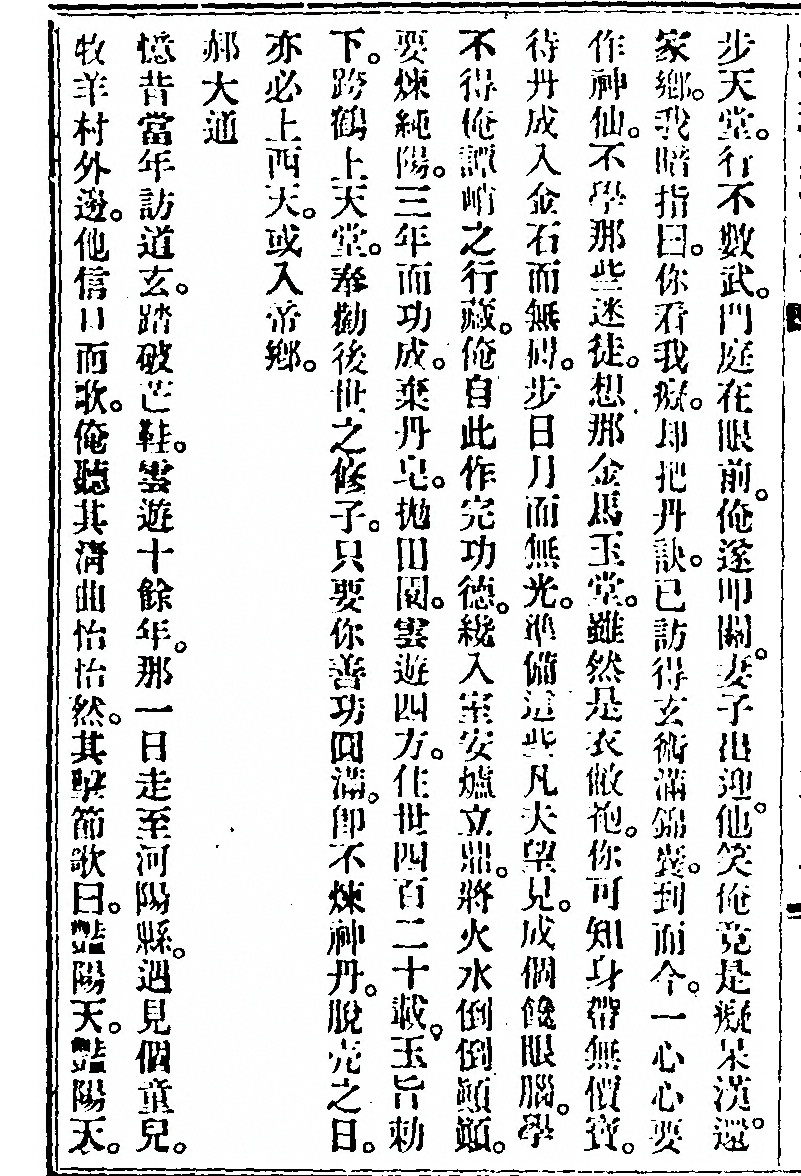 步天堂。行不數武。門庭在眼前。俺遂叩關。妻子出迎。他笑俺竟是癡呆漢。還
家鄉。我暗指曰。你看我癡。却把丹訣。已訪得玄術滿錦囊。到而今。一心心要
作神仙。不學那些迷徒。想那金馬玉堂。雖然是衣敝袍。你可知身帶無價寶。
待丹成入金石而無碍。步日月而無光。準備這些凡夫望見。成個餓眼腦。學
不得俺譚峭之行藏。俺自此作完功德。纔入室安爐立鼎。將火水倒倒顛顛。
要煉純陽。三年而功成。棄丹皂。拋田園。雲遊四方。住世四百二十載。玉旨勅
下。跨鶴上天堂。奉勸後世之修子。只要你善功圓滿。即不煉神丹。脫壳之日。
亦必上西天。或入帝鄉。
郝大通
憶昔當年訪道玄。踏破芒鞋。雲遊十餘年。那一日走至河陽縣。遇見個童兒。
牧羊村外邊。他信口而歌。俺聽其清曲怡怡然。其擊節歌曰。豔陽天。豔陽天。